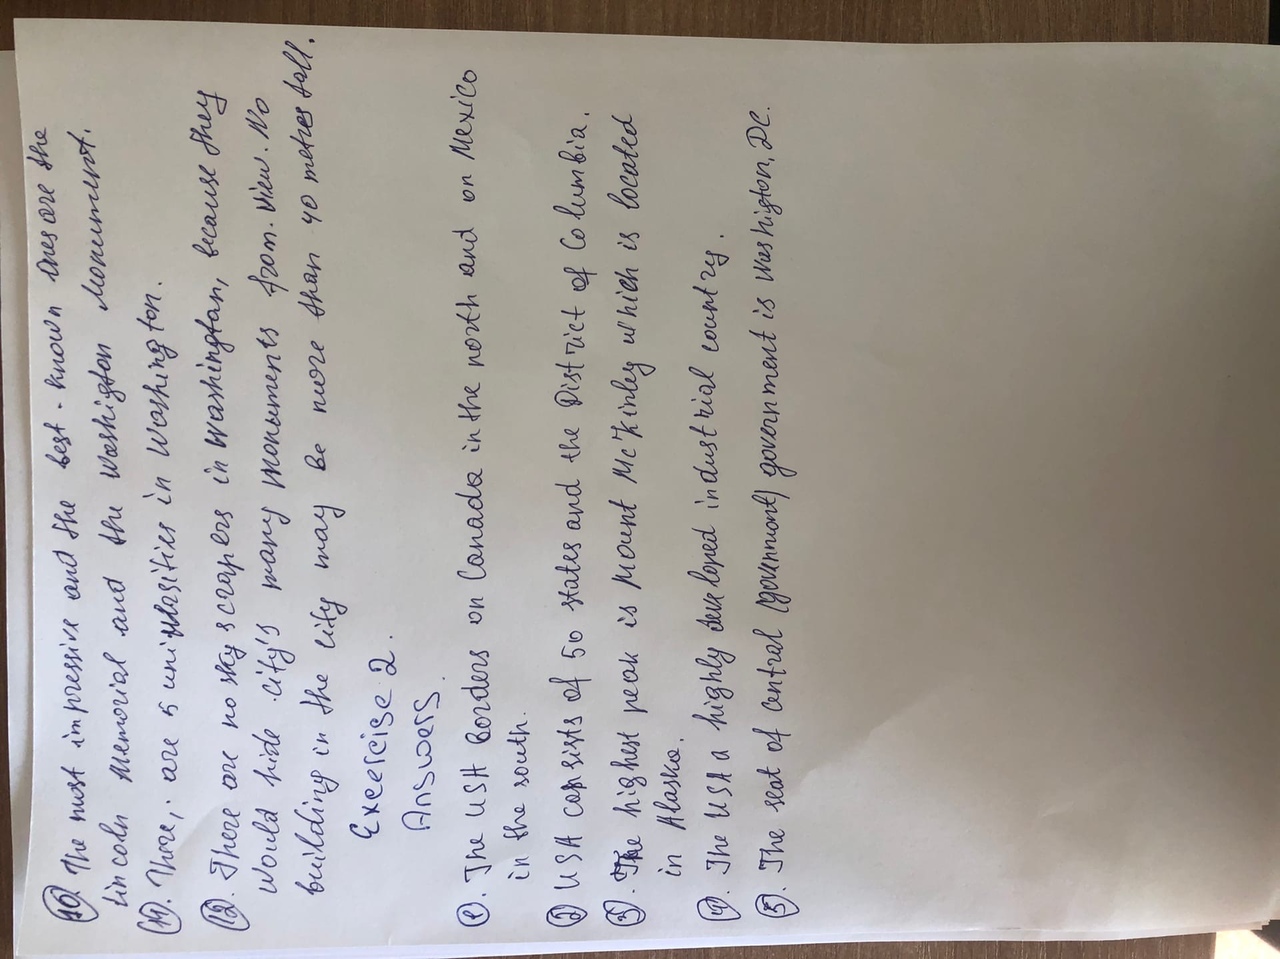 10. The most impressive and the best-known ones are the
Lincoln Memorial and the Washigton Monument.
11. There, are 5 univwersities in Washington.
12. There are no sky scrapers in Washington, because they
would hide city's many monuments from. view. No
building in the city may be more than 40 metres tall.
Excercise 2.
Answers.
1. The USA Borders on Canada in the north and on Mexico
in the south.
2 USA consists of 50 states and the District of Columbia.
3. The highest peak is Mount McKinley which is located
in Alaska.
4. The USA a highly developed industrial country.
5. The seat of central (government) government is Washigton, DC.